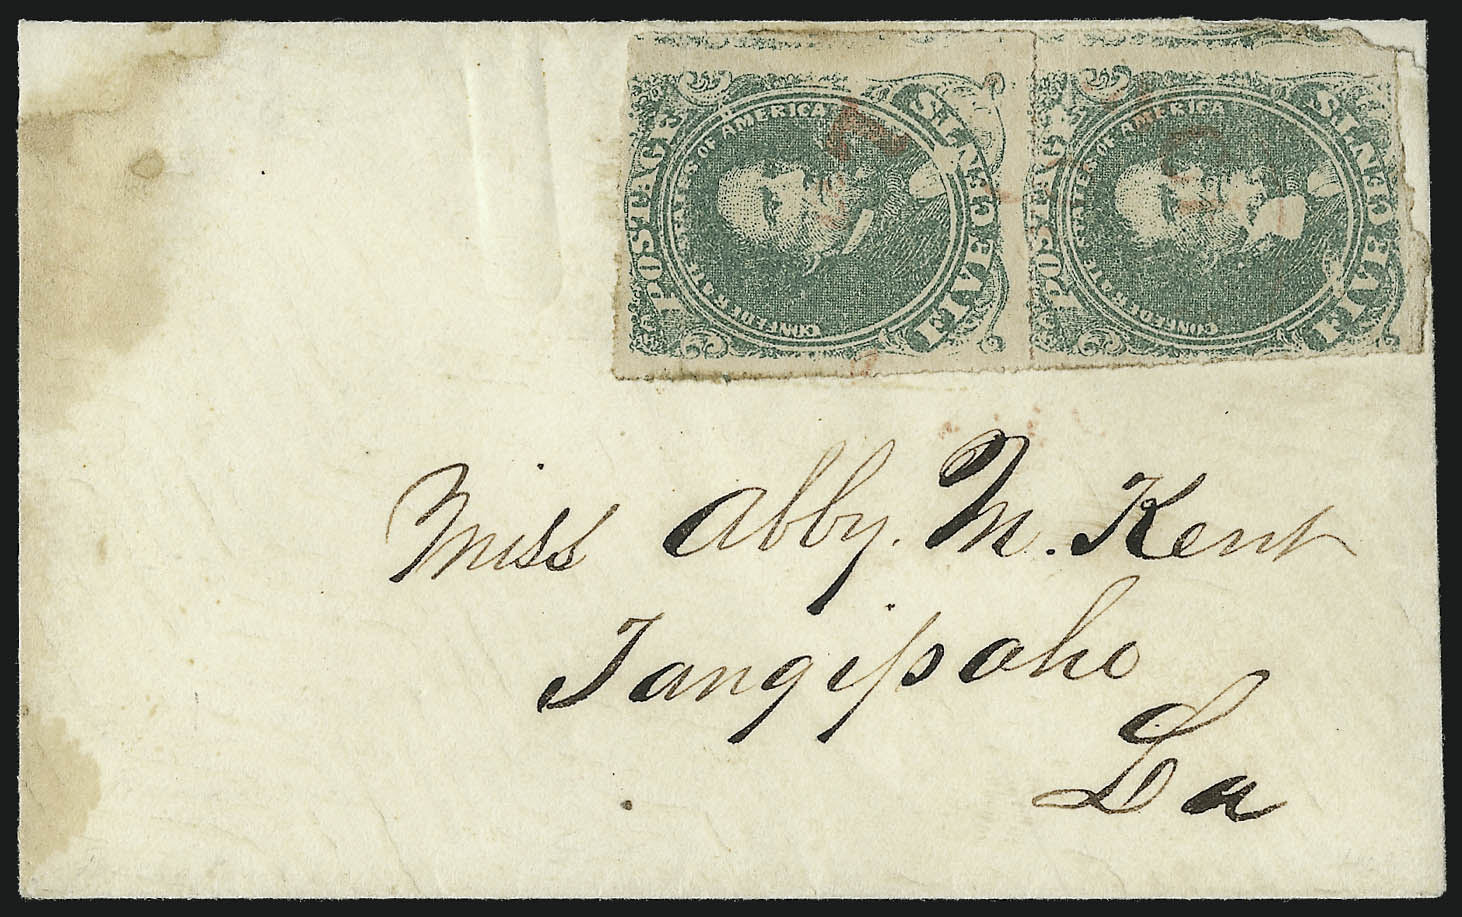 POSTAGE
CONFEDERATE STATES OF AMERICA
FIVE CENTS
POSTAGE
CONFEDERATE STATES OF AMERICA
FIVE CENTS
Miss Abby. M. Kent
Tangipaho
La